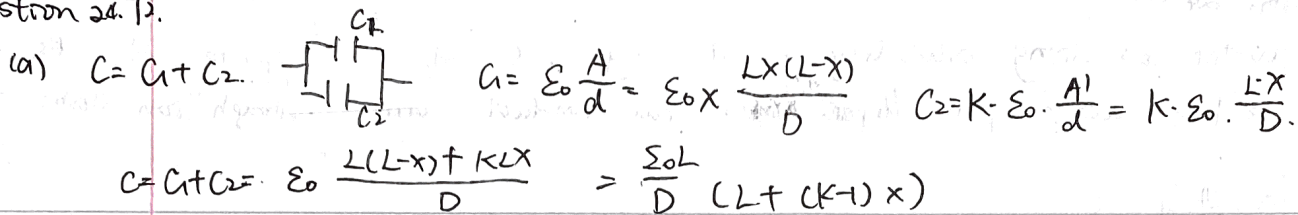 stion 24. 12.
(a) C = C₁ + C₂. C₁ C₂ C₁ = ε₀ A/d = ε₀ × L×(L-x)/D C₂ = K · ε₀ · A'/d = K · ε₀ · L·x/D.
C = C₁ + C₂ = ε₀ (L(L-x) + KLx)/D = ε₀L/D (L + (K-1) x)